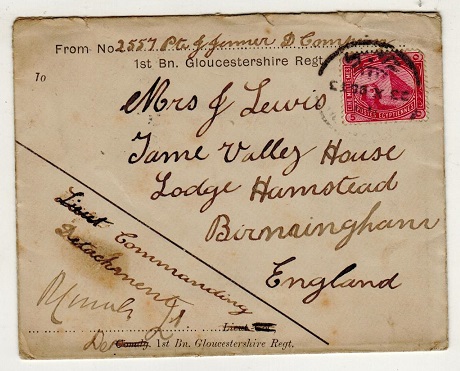 From No 2557 Pte J Jenner D Company
1st Bn. Gloucestershire Regt.
To
Mrs J Lewis
Tame Valley House
Lodge Hamstead
Birmingham
England
Lieut Commanding
Detachment
Lieut
1st Bn. Gloucestershire Regt.